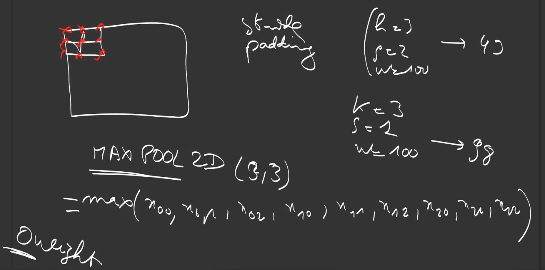 stride
padding
k=3
s=2
w=100 → 49
K=3
s=1
w=100 → 98
MAX POOL 2D (3,3)
= max(x00, x01, x02, x10, x11, x12, x20, x21, x22)
0 weight